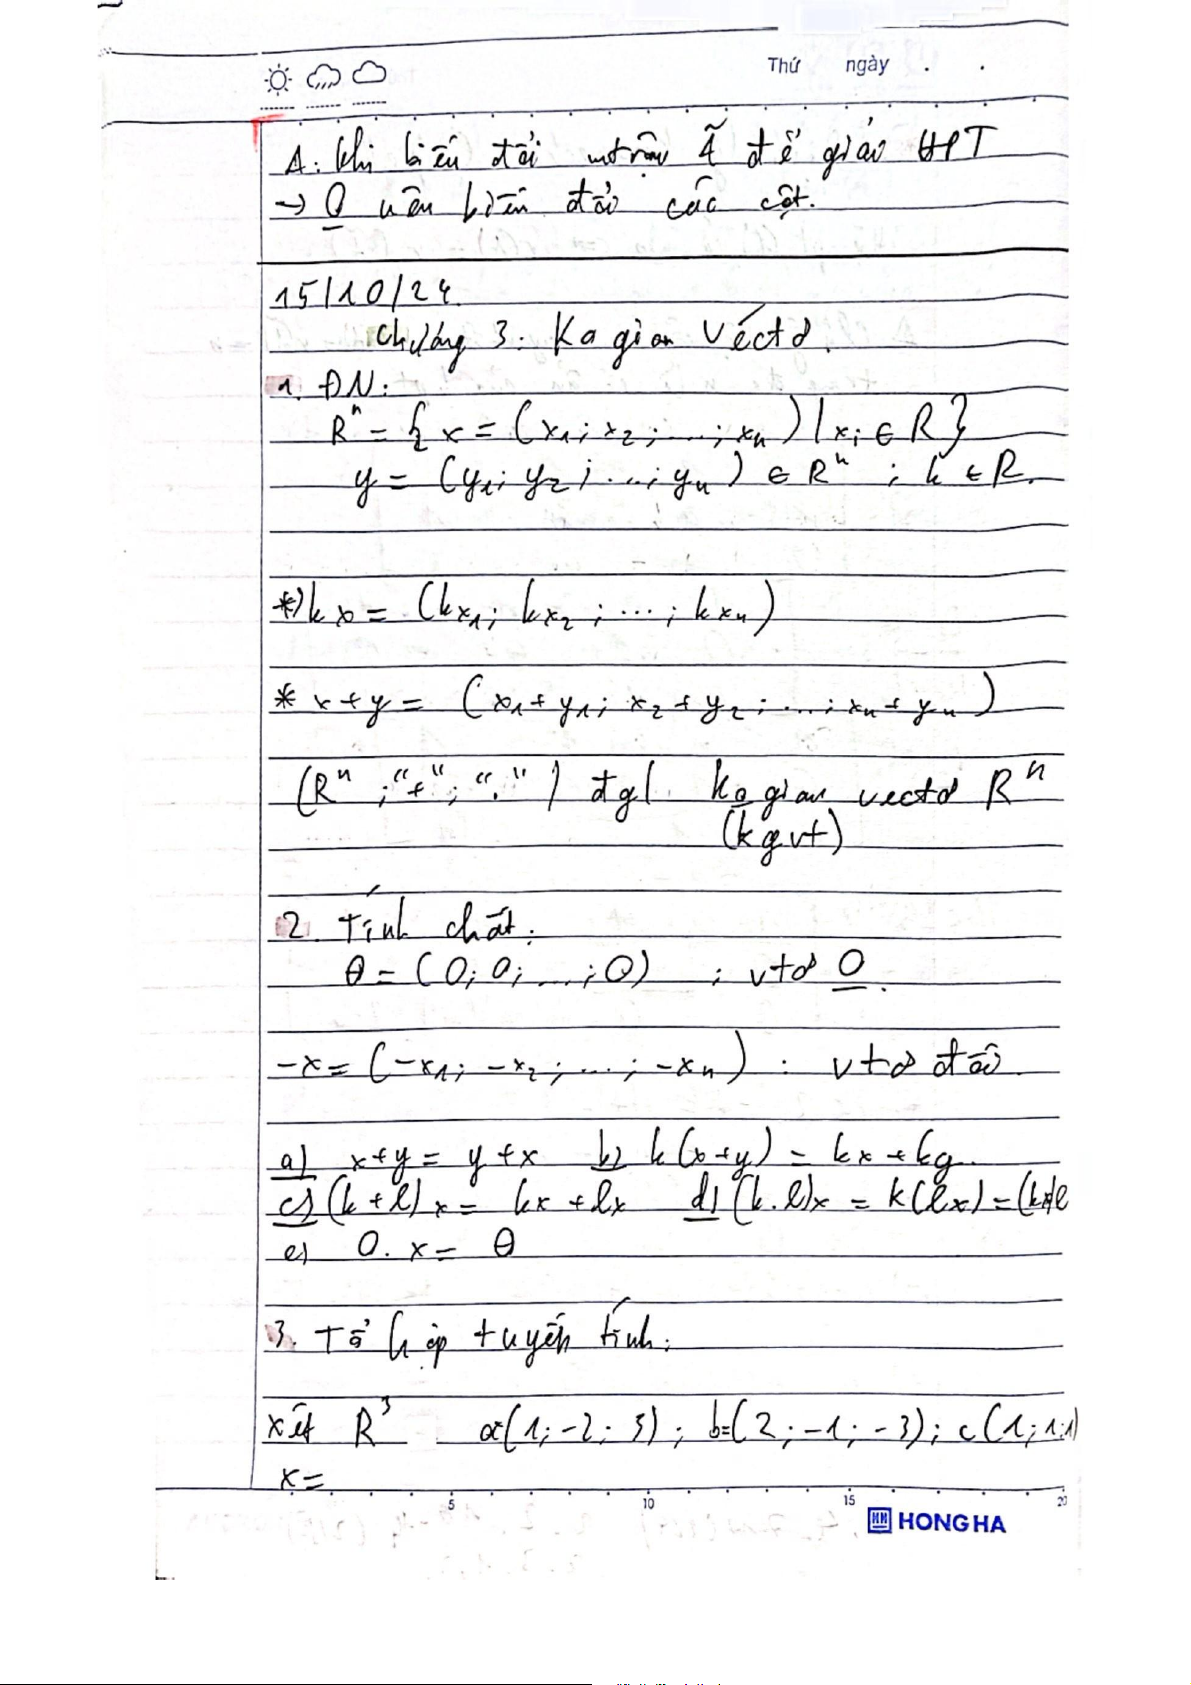 Thứ ngày . .
A: khi biến đổi mtrận Ã để giải HPT
→ O nên biến đổi các cột.
15/10/24
Chương 3: Ko gian véctơ.
1. ĐN:
Rⁿ = { x = (x₁; x₂; ...; xₙ) | xᵢ ∈ R }
y = (y₁; y₂; ...; yₙ) ∈ Rⁿ ; k ∈ R.
*) kx = (kx₁; kx₂; ...; kxₙ)
* x+y = (x₁+y₁; x₂+y₂; ...; xₙ+yₙ)
(Rⁿ ; "+"; "." ) đgl ko gian vectơ Rⁿ
(kgvt)
2. Tính chất:
θ = (0; 0; ...; 0) ; vtơ 0.
-x = (-x₁; -x₂; ...; -xₙ) : vtơ đối
a) x+y = y+x b) k(x+y) = kx + ky
c) (k+l)x = kx + lx d) (k.l)x = k(lx) = (kx)l
e) 0.x = θ
3. Tổ hợp tuyến tính:
xét R³ a=(1; -2; 3); b=(2; -1; -3); c(1; 1; 1)
x =
5 10 15 20
HONG HA